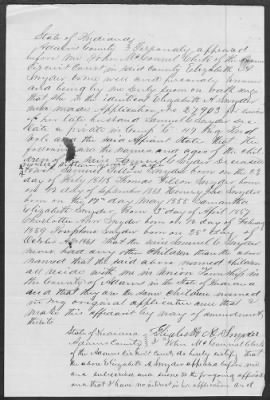 State of Indiana
Adams County } Personally appeared
before me John McConnel Clerk of the
Circuit Court in said County Elizabeth A
Snyder to me well and personally known
and being by me duly sworn on oath says
that she is the identical Elizabeth A Snyder
who made Application No 27903 as widow
of her late husband Samuel C Snyder De-
late a private in Comp C 47 Reg Ind
Vols and the said Affiant states that the
following are the names and ages of the chil
dren of the said Samuel C Snyder Deceased
Samuel Snyder born on the 22
day of 1848 Thomas Snyder born
on day of September 1851 Henry Snyder
born on the 19th day May 1855 Samantha
Elizabeth Snyder born 3d day of April 1857
Snyder born on day of February
1859 Josephine Snyder born on 25th day of
1861 that the said Samuel C Snyder
never had any other children than the above
named that the said above named children
all reside with me in Union Township in
the County of Adams in the State of Indiana
and that they are the same Children named
in my original application and that I
make this affidavit by way of amendment
thereto
Elizabeth A Snyder
State of Indiana
Adams County } I John McConnel Clerk
of the Adams Circuit Court do hereby certify that
the above Elizabeth A Snyder appeared before me
and subscribed and swore to the foregoing affidavit
and that I have no interest in her application and